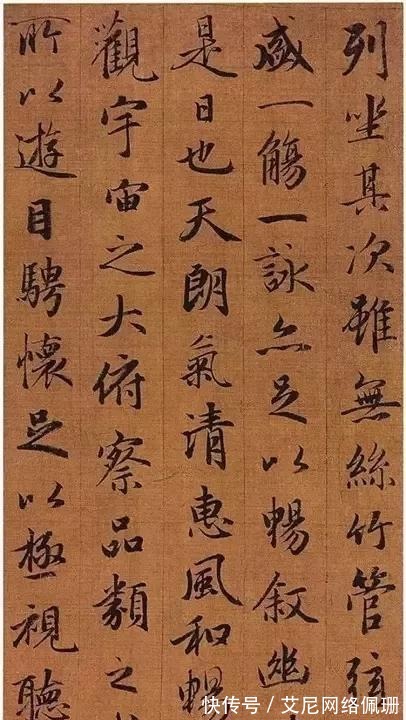 列坐其次雖無絲竹管弦
盛一觴一詠亦足以暢叙幽
是日也天朗氣清惠風和暢
觀宇宙之大俯察品類之
所以遊目騁懷足以極視聽
快传号 / 艾尼网络佩珊